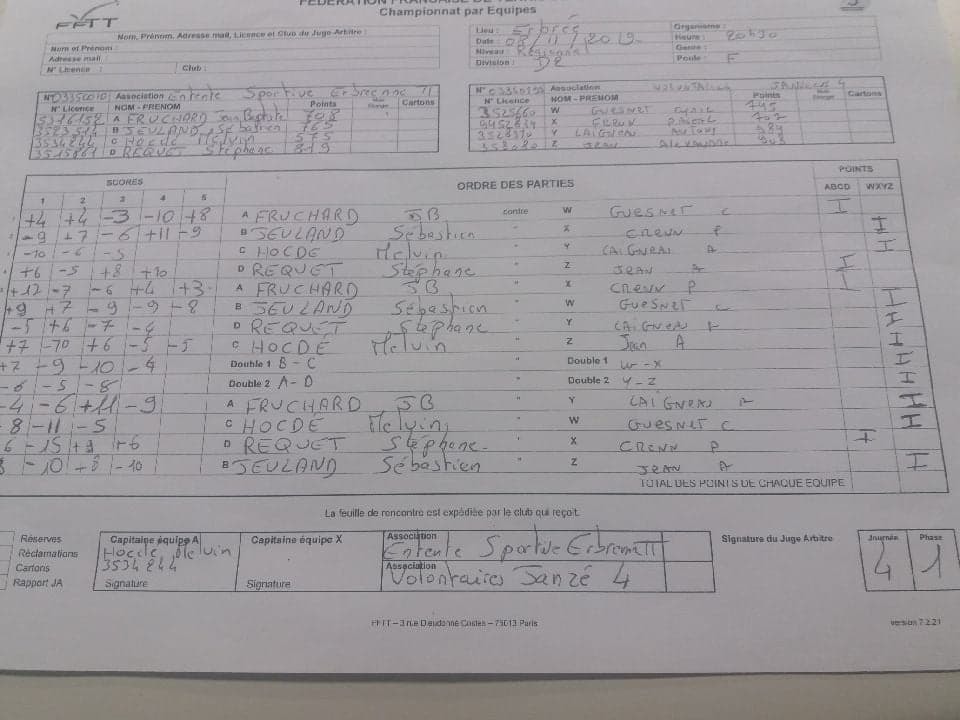 FÉDÉRATION FRANÇAISE DE
Championnat par Equipes
FFTT
Nom, Prénom, Adresse mail, Licence et Club du Juge-Arbitre :
Nom et Prénom :
Adresse mail :
N° Licence : Club :
Lieu : Erbrée
Date : 08/11/2019
Niveau : Régional
Division : D2
Organisme :
Heure : 20h30
Genre :
Poule : F
N° 03350010 Association Entente Sportive Erbréenne TT
N° Licence NOM - PRENOM Points Cartons
A FRUCHARD Jean Baptiste 708
B JEULAND Sébastien 765
3534244 C HOCDÉ Melvin 575
3515861 D REQUET Stéphane 819
Association VOLONTAIRES JANZÉEN 4
N° Licence NOM - PRENOM Points Cartons
3525660 W GUESNET
9452834 X CRENN 707
3528370 Y LAIGNEAU
Z JEAN
SCORES ORDRE DES PARTIES POINTS
1 2 3 4 5 ABCD WXYZ
+4 +4 -3 -10 +8 A FRUCHARD JB contre W GUESNET C I
-9 +7 -6 +11 -9 B JEULAND Sébastien " X CRENN P I
-10 -6 -5 C HOCDÉ Melvin " Y LAIGNEAU A I
+6 -5 +8 +10 D REQUET Stéphane " Z JEAN A I
+12 -7 -6 +4 +3 A FRUCHARD JB " X CRENN P I
+9 +7 -9 -9 -8 B JEULAND Sébastien " W GUESNET C I
-5 +6 -7 -4 D REQUET Stéphane " Y LAIGNEAU A I
+7 -10 +6 -5 -5 C HOCDÉ Melvin " Z Jean A I
+7 -9 -10 -4 Double 1 B-C " Double 1 W-X I
-6 -5 -8 Double 2 A-D " Double 2 Y-Z I
-4 -6 +11 -9 A FRUCHARD JB " Y LAIGNEAU A I
8 -11 -5 C HOCDÉ Melvin " W GUESNET C I
6 -15 +9 +6 D REQUET Stéphane " X CRENN P I
-10 +8 -10 B JEULAND Sébastien " Z JEAN A I
TOTAL DES POINTS DE CHAQUE EQUIPE
La feuille de rencontre est expédiée par le club qui reçoit.
Réserves
Réclamations
Cartons
Rapport JA
Capitaine équipe A
Hocdé Melvin
3534244
Signature
Capitaine équipe X
Signature
Association
Entente Sportive Erbréenne TT
Association
Volontaires Janzé 4
Signature du Juge Arbitre
Journée Phase
4 1
FFTT – 3 rue Dieudonné Costes – 75013 Paris
version 7.2.21